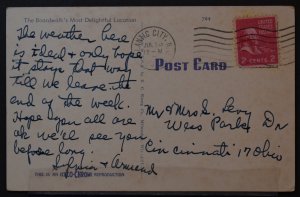 The Boardwalk's Most Delightful Location
744
ANTIC CITY
JUL
UNITED STATES POSTAGE
2 CENTS 2
The weather here
is ideal & only hope
it stays that way
till we leave the
end of the week.
Hope you all are
ok we'll see you
before long.
Sylvia & Armand
POST CARD
Mr & Mrs G. Levy
Wess Park Dr
Cincinnati 17 Ohio
THIS IS AN COLOR-CHROM REPRODUCTION